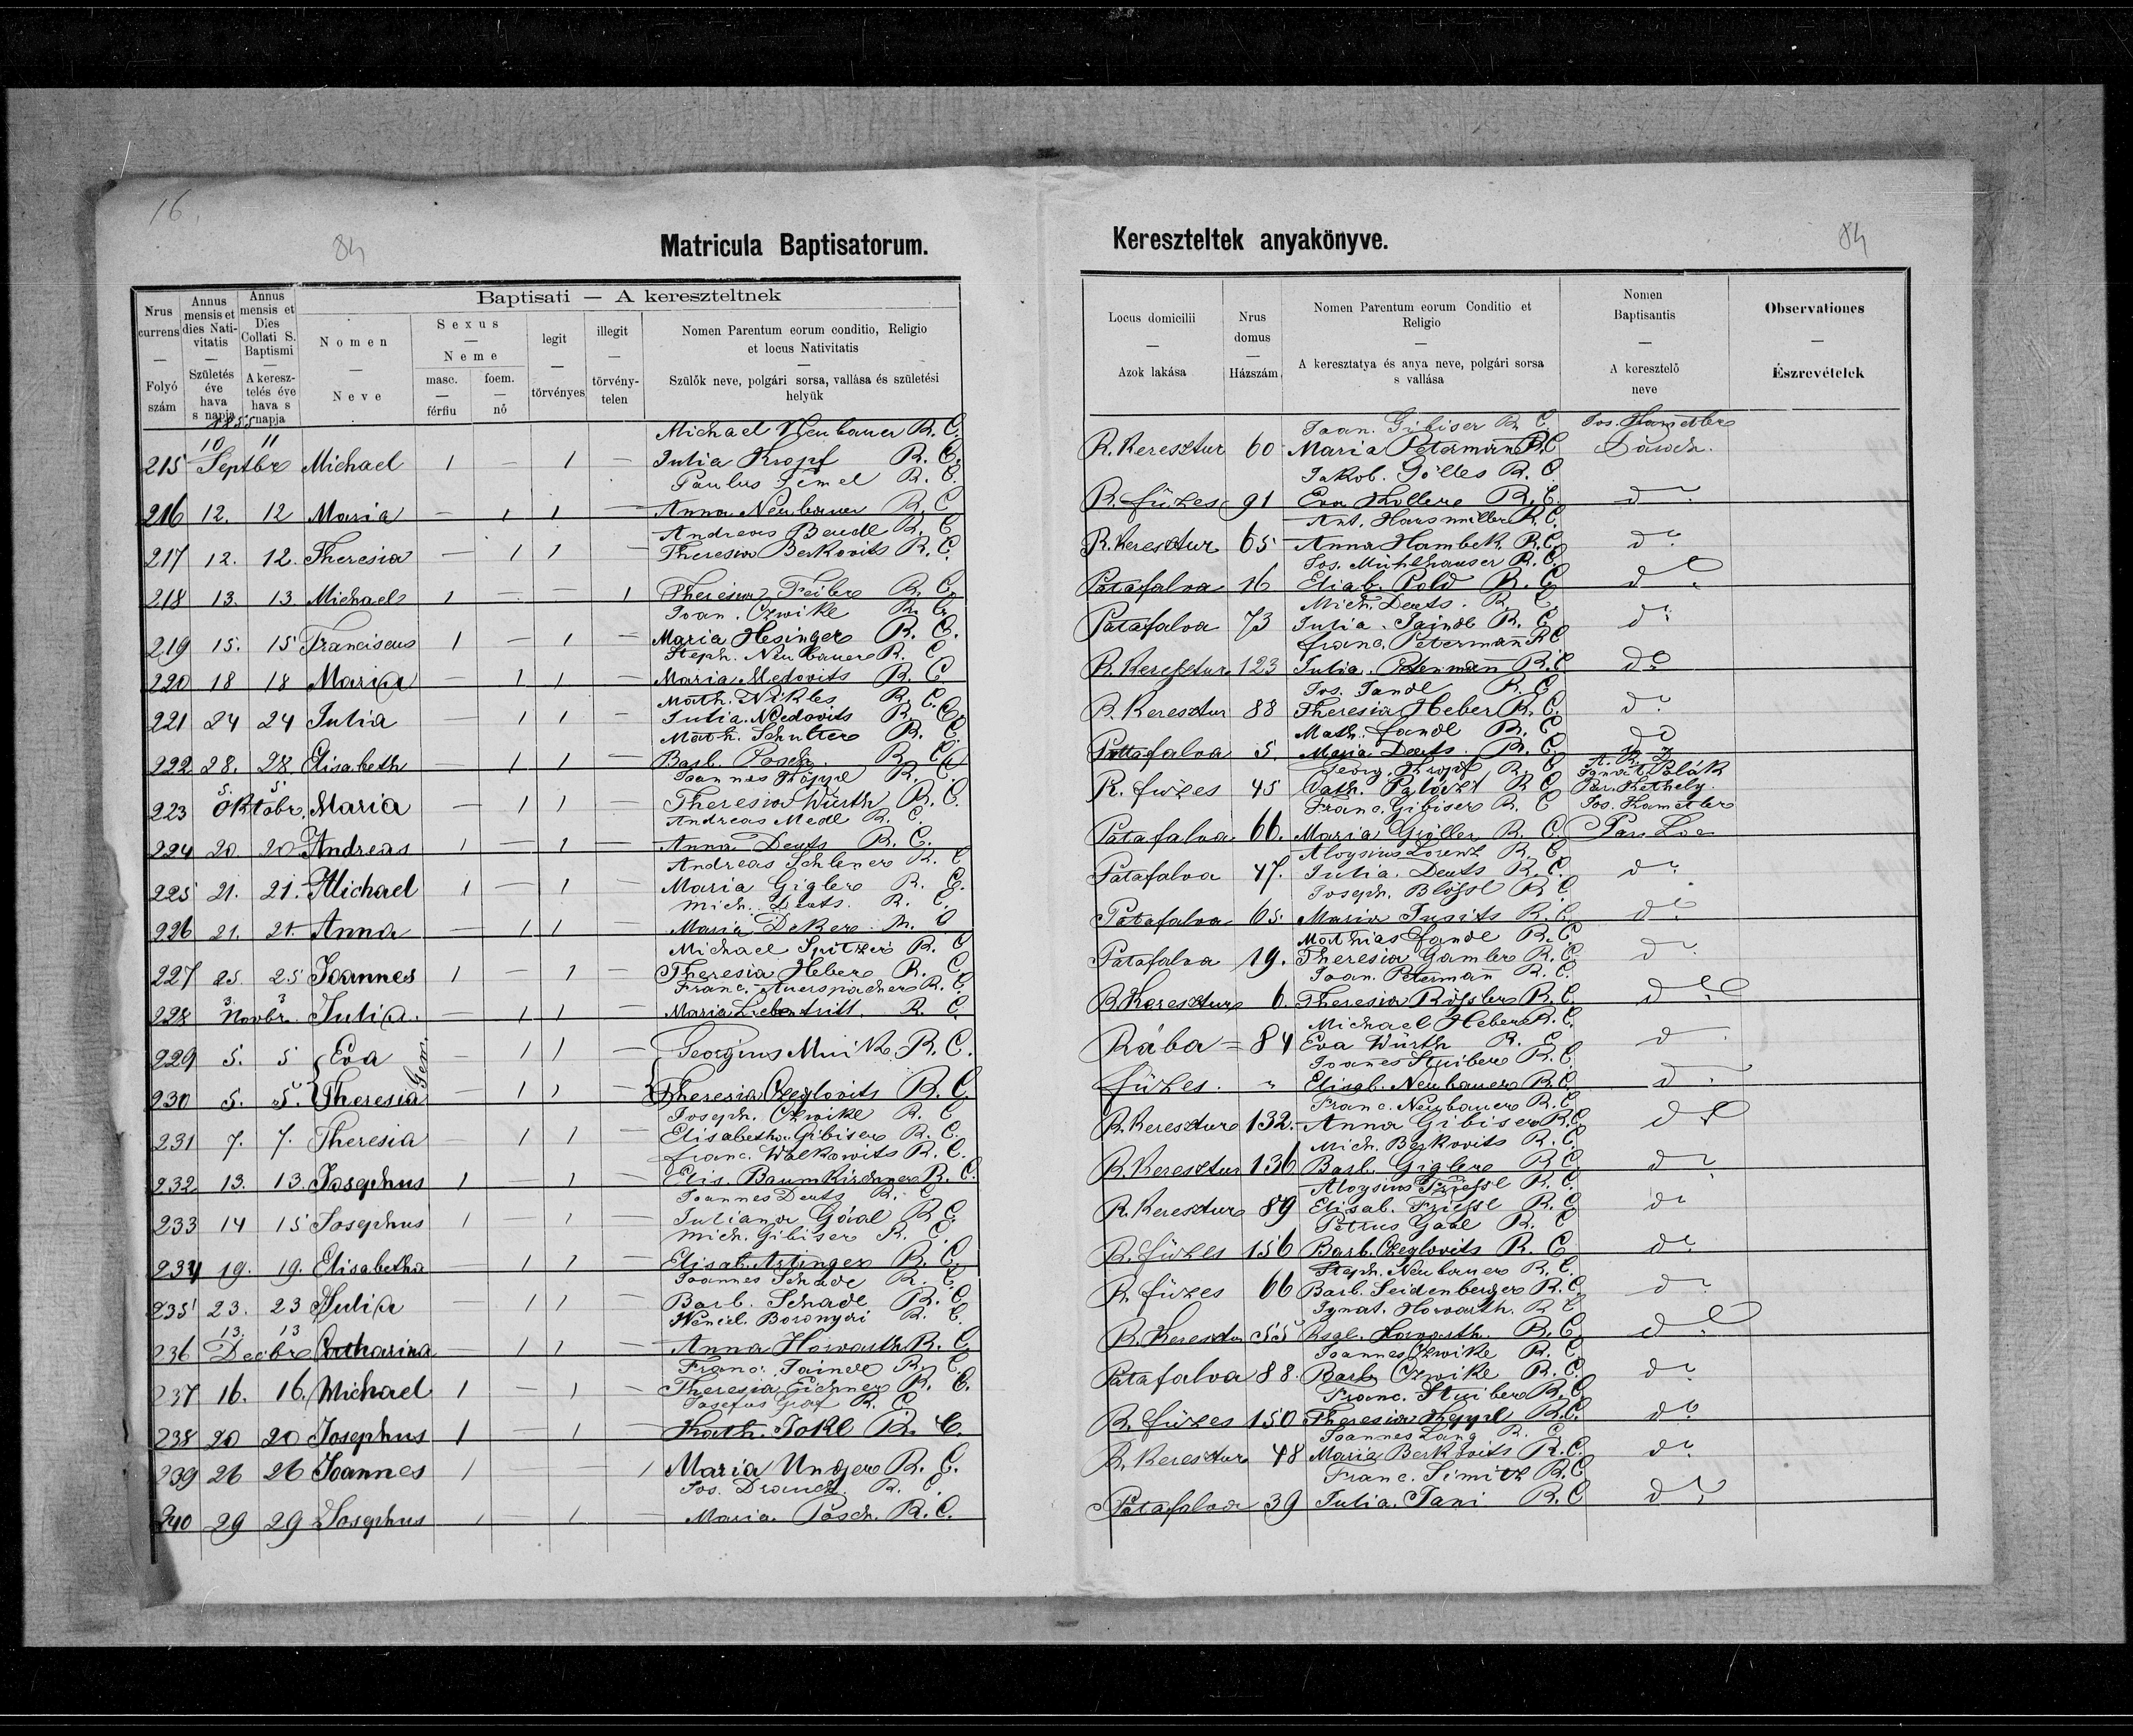 16.
84
84
Matricula Baptisatorum.
Kereszteltek anyakönyve.
Nrus currens — Folyó szám
Annus mensis et dies Nativitatis — Születés éve hava s napja
Annus mensis et Dies Collati S. Baptismi — A keresztelés éve hava s napja
Baptisati — A kereszteltnek
Nomen — Neve
Sexus — Neme
masc. — férfiu
foem. — nő
legit — törvényes
illegit — törvénytelen
Nomen Parentum eorum conditio, Religio et locus Nativitatis — Szülők neve, polgári sorsa, vallása és születési helyük
Locus domicilii — Azok lakása
Nrus domus — Házszám
Nomen Parentum eorum Conditio et Religio — A keresztatya és anya neve, polgári sorsa s vallása
Nomen Baptisantis — A keresztelő neve
Observationes — Észrevételek
1855
215 10 Septbr 11 Michael 1 — 1 — Michael Neubauer R. C. Julia Kropf R. C. R. Keresztur 60 Joan. Gibiser R. C. Maria Peterman R. C. Jos. Hametler
216 12. 12 Maria — 1 1 — Paulus Semel R. C. Anna Neubauer R. C R. füzes 91 Jakob. Gölles R. C. Eva Holler R. C. do
217 12. 12. Theresia — 1 1 — Andreas Bendl R. C. Theresia Berkovits R. C. R. Keresztur 65 Ant. Harsmüller R. C. Anna Hambek R. C. do
218 13. 13 Michael 1 — — 1 Theresia Feiber R. C. Patafalva 16 Jos. Mühlhauser R. C. Elisab. Pold R. C. do
219 15. 15 Franciscus 1 — 1 — Joan. Czwikl R. C. Maria Hesinger R. C. Patafalva 73 Mich. Deuts. R. C. Julia Jaindl R. C. do
220 18 18 Maria — 1 1 — Steph. Neubauer R. C. Maria Medovits R. C. R. Keresztur 123 franc. Petermañ R. C. Julia Petermañ R. C. do
221 24 24 Julia — 1 1 — Math. Nikles R. C. Julia Medovits R. C. R. Keresztur 88 Jos. Jandl R. C. Theresia Heber R. C. do
222 28. 28. Elisabeth — 1 1 — Math. Schulter R. C. Barb. Posch R. C. Pattafalva 5. Math. Jandl R. C. Maria Deuts. R. C. do
223 5. Oktobr. 5. Maria — 1 1 — Joannes Köppl R. C. Theresia Würth R. C. R. füzes 45 Georg. Kropf R. C. Cath. Palóczi R. C. Ignat Polák Par. Kethely
224 20 20 Andreas 1 — 1 — Andreas Medl R. C. Anna Deuts R. C. Patafalva 66. Franc. Gibiser R. C. Maria Gröller R. C. Jos. Hametler Par. Loc
225 21. 21. Michael 1 — 1 — Andreas Schlener R. C. Maria Gigler R. C. Patafalva 47. Aloysius Lorenz R. C. Julia Deuts R. C. do
226 21. 21. Anna — 1 1 — Mich. Deuts. R. C. Maria Deker R. C Patafalva 65. Joseph. Blössl R. C. Maria Jusits R. C. do
227 25. 25 Joannes 1 — 1 — Michael Spitzer R. C. Theresia Heber R. C. Patafalva 19. Mathias Jandl R. C. Theresia Gamler R. C. do
228 3. Novbr. 3 Julia. — 1 1 — Franc. Auerspacher R. C. Maria Liebentritt R. C. R. Keresztur 6 Joan. Petermañ R. C. Theresia Rössler R. C. do
229 5. 5 Eva Gem. — 1 1 — Georgius Muik R. C. Rába = 84 Michael Heber R. C. Eva Würth R. C. do
230 5. 5. Theresia — 1 1 — Theresia Czeglovits R. C. füzes. " Joañes Stuiber R. C. Elisab. Neubauer R. C. do
231 7. 7. Theresia — 1 1 — Joseph. Czwikl R. C. Elisabetha Gibiser R. C. R. Keresztur 132. Franc. Neubauer R. C. Anna Gibiser R. C. do
232 13. 13. Josephus 1 — 1 — franc. Walkowits R. C. Elis. Baumkirchner R. C. R. Keresztur 136 Mich. Berkovits R. C. Barb. Gigler R. C. do
233 14 15 Josephus 1 1 — Joannes Deuts R. C. Juliana Gáal R. C. R. Keresztur 89 Aloysius Friessl R. C. Elisab. Friessl R. C. do
234 19. 19. Elisabetha — 1 1 — Mich. Gibiser R. C. Elisab. Artinger R. C. R. füzes 156 Petrus Gaal R. C. Barb. Czeglovits R. C. do
235 23. 23 Julia — 1 1 — Joannes Schadl R. C. Barb. Schadl R. C. R. füzes 66 Steph. Neubauer R. C. Barb. Seidenberger R. C. do
236 13. Decbr 13 Catharina — 1 1 — Wencel. Boronyai R. C. Anna Horvarth R. C. R. Keresztur 55 Ignat. Horvarth. R C Horvarth. R. C. do
237 16. 16. Michael 1 — 1 — Franc. Jaindl R. C. Theresia Eichner R. C. Patafalva 88. Joannes Czwikl R. C. Barb. Czwikl R. C. do
238 20 20 Josephus 1 — 1 — Josefus Graf R. C. Kath. Jokl R. C. R. füzes 150 Franc. Stuiber R. C. Theresia Keppl R. C. do
239 26 26 Joannes 1 — — 1 Maria Unger R. C. R. Keresztur 48 Joannes Lang R. C. Maria Berkovits R. C. do
240 29 29 Josephus 1 — 1 — Jos. Drauch R. C. Maria Posch. R. C. Patafalva 39 Franc. Simitz R. C. Julia Tani R. C do